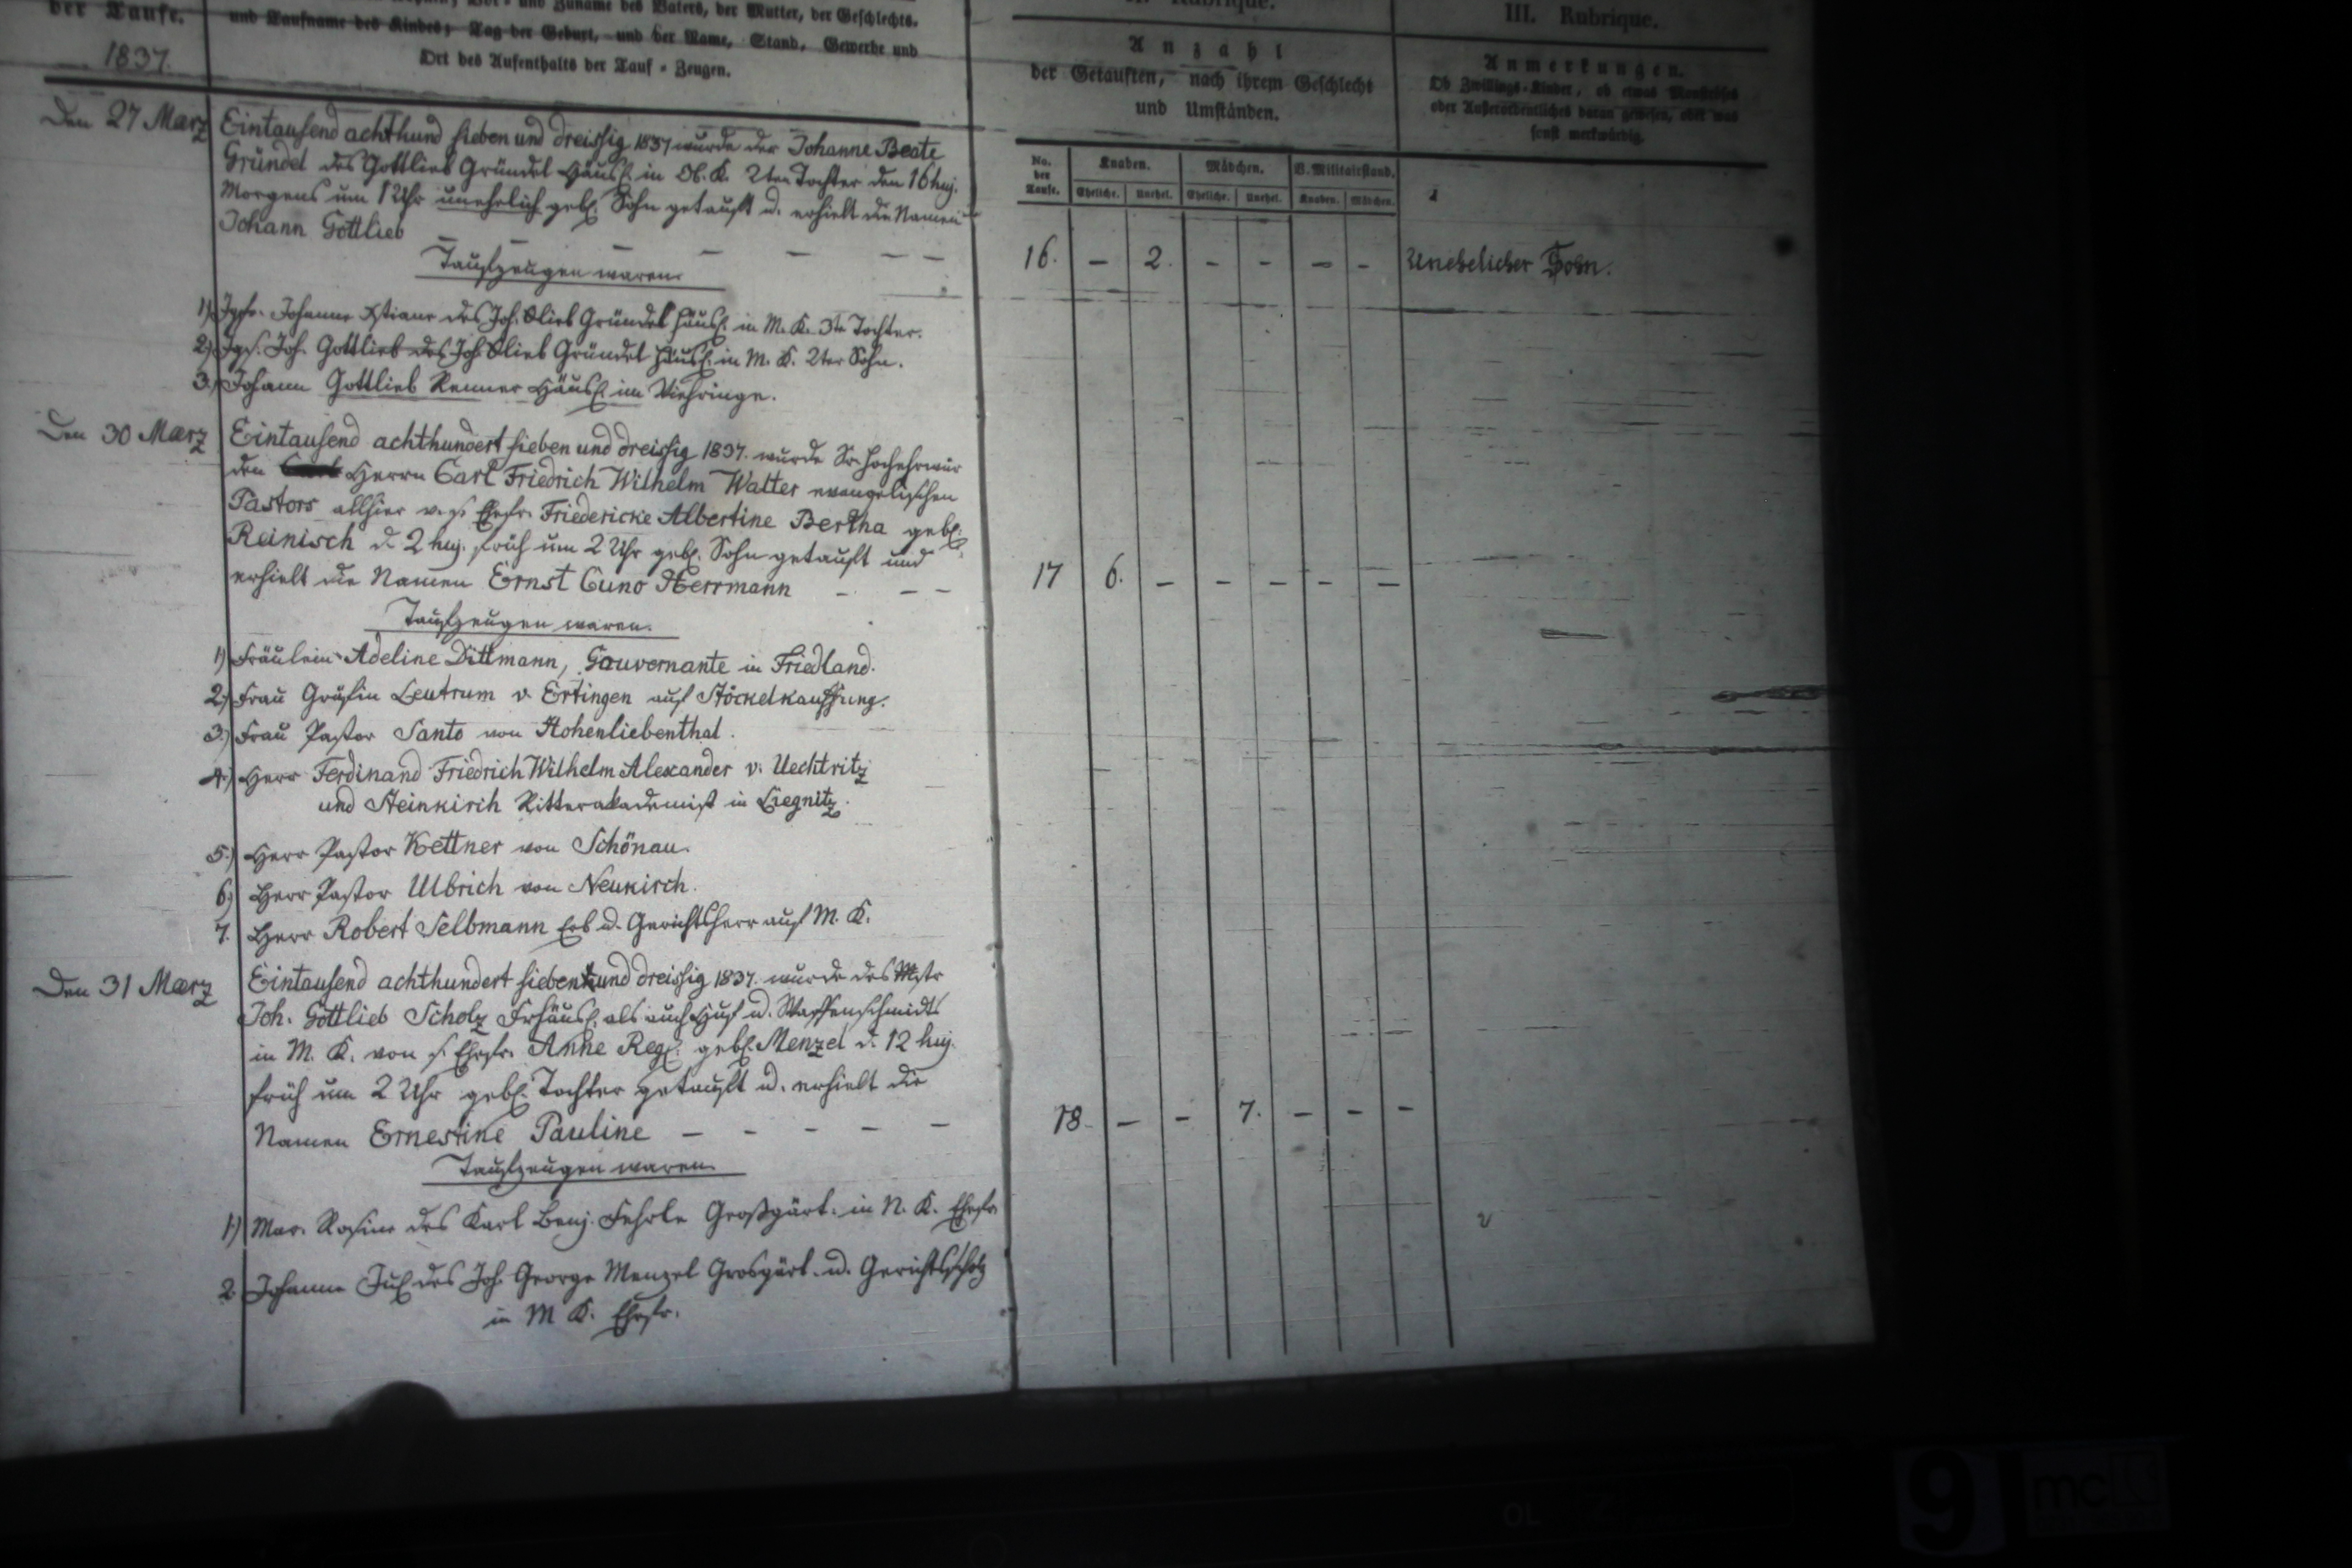 der Taufe.
1837.
Vor- und Zuname des Vaters, der Mutter, der Geschlechts-
und Taufname des Kindes; Tag der Geburt, und der Name, Stand, Gewerbe und
Ort des Aufenthalts der Tauf-Zeugen.
Rubrique.
Anzahl
der Getauften, nach ihrem Geschlecht
und Umständen.
III. Rubrique.
Anmerkungen.
Ob Zwillings-Kinder, ob etwas
oder Außerordentliches daran gewesen, oder was
sonst merkwürdig.
No. der Taufe.
Knaben.
Mädchen.
V. Militairstand.
Eheliche.
Unehel.
Eheliche.
Unehel.
Knaben.
Mädchen.
Den 27 Marz
Eintausend achthund sieben und dreissig 1837 wurde der Johanne Beate
Gründel des Gottlieb Gründel Häusl. in Ob. K. 2ten Tochter den 16 huj.
Morgens um 1 Uhr unehelich geb. Sohn getauft u. erhielt die Namen
Johann Gottlieb – – – – – – –
Taufzeugen waren.
16. – 2. – – – –
Unehelicher Sohn.
1) Jgfr. Johanne Xstiane des Joh. Glieb Gründel Häusl. in M. K. 3te Tochter.
2) Jgs. Joh. Gottlieb des Joh. Glieb Gründel Häusl. in M. K. 2ter Sohn.
3.) Johann Gottlieb Renner Häusl. im Viehringe.
Den 30 Marz
Eintausend achthundert sieben und dreissig 1837. wurde Sr. Hochehrwür
den Herrn Carl Friedrich Wilhelm Walter evangelischen
Pastors allhier v. s. Ehefr. Friedericke Albertine Bertha geb.
Reinisch d. 2 huj. früh um 2 Uhr geb. Sohn getauft und
erhielt die Namen Ernst Cuno Herrmann – – –
17 6. – – – – –
Taufzeugen waren.
1) Fräulein Adeline Dittmann, Gouvernante in Friedland.
2) Frau Gräfin Leutrum v. Ertingen auf Stöckelkauffung.
3.) Frau Pastor Santo von Hohenliebenthal.
4.) Herr Ferdinand Friedrich Wilhelm Alexander v. Uechtritz
und Steinkirch Ritterakademist in Liegnitz.
5.) Herr Pastor Kettner von Schönau.
6) Herr Pastor Ulbrich von Neukirch.
7. Herr Robert Selbmann Erb u. Gerichtsherr auf M. K.
Den 31 Marz
Eintausend achthundert sieben und dreissig 1837. wurde des Mstr
Joh. Gottlieb Scholz Frhäusl. als auch Huf u. Waffenschmidts
in M. K. von s. Ehefr. Anne Reg. geb. Menzel d. 12 huj.
früh um 2 Uhr geb. Tochter getauft u. erhielt die
Namen Ernestine Pauline – – – – –
18. – – 7. – – –
Taufzeugen waren.
1) Mar. Rosine des Karl Benj. Fehrle Großgärt. in N. K. Ehefr.
2. Johanne Jul. des Joh. George Menzel Grosgärt. u. Gerichtsscholz
in M K. Ehefr.
9
mc